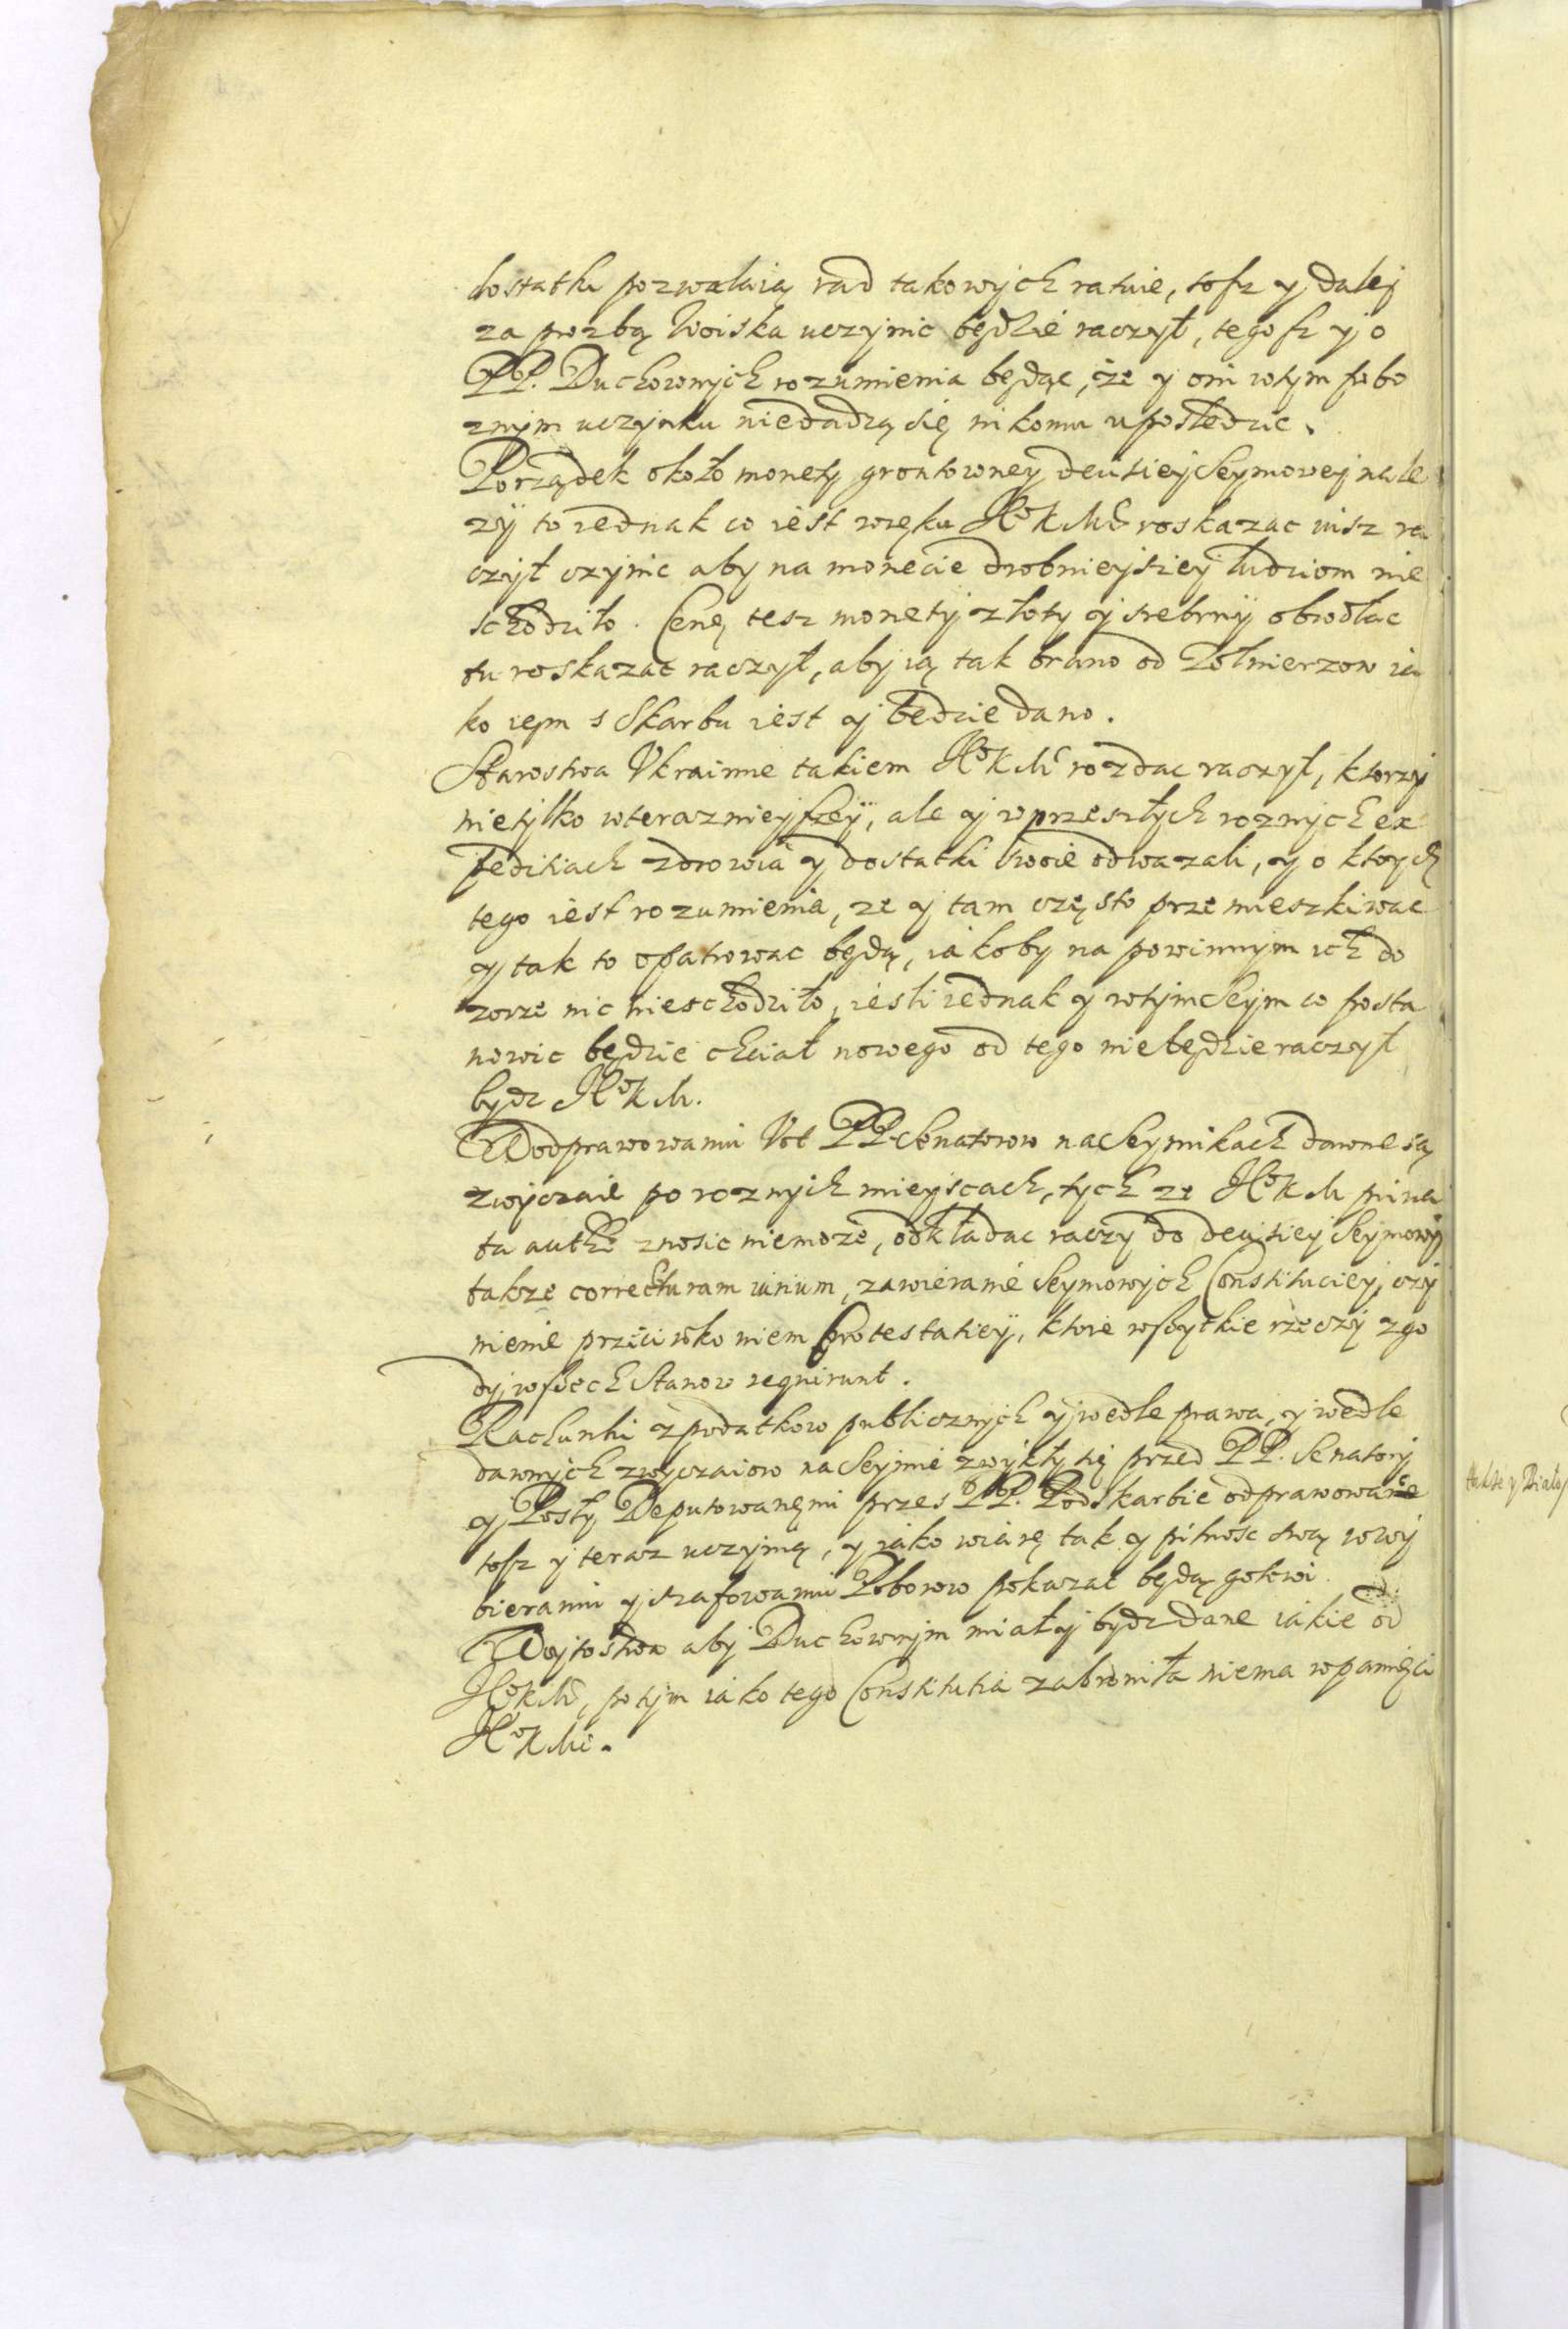 dostatku pozwalaią rad takowych ratuie, tosz y daley
za prozbą Woiska uczynic będzie raczył, tegosz y o
PP. Duchownych rozumienia będąc, że y oni wtym pobo
znym uczynku niedadzą się nikomu uposledzic.
Porządek około monety grontowney decisiey Seymowey nale
zy to iednak co iest wręku JKM roskazac iusz ra
czył czynic aby na monecie drobnieyszey ludziom nie
schodziło. Cenę tesz monety złoty y srebrny obwołac
tu roskazac raczył, aby ią tak brano od Zołnierzow ia
ko iem s Skarbu iest y będzie dano.
Starostwa Vkrainne takiem JKM rozdac raczył, ktorzy
nietylko wterazniejszey, ale y wprzeszłych roznych ex
peditiach zdrowia y dostatki swoie odwazali, y o ktorych
tego iest rozumienia, ze y tam często przemieszkiwac
y tak to opatrowac będą, iakoby na powinnym ich do
zorze nic nieschodziło, iesli iednak y wtym Seym co posta
nowic będzie chciał nowego od tego niebędzie raczył
bydz JKM.
W odprawowaniu Vot PP. Senatorow na Seymikach dawne są
zwyczaie po roznych mieyscach, tych ze JKM priua
ta authe znosic niemoze, odkładac raczy do decisiey Seymowy
takze correcturam iurium, zawieranie Seymowych Constituciey, czy
nienie przeciwko niem Protestatiey, ktore wszytkie rzeczy zgo
dy wszech Stanow requirunt.
Rachunki z podatkow publicznych y wedle prawa, y wedle
dawnych zwyczaiow na Seymie zwykły się przed PP. Senatory
y Posły Deputowanęmi przes PP. Podskarbie odprawowac
tosz y teraz uczynią, y iako wiarę tak y pilnosc swą wwy
bieraniu y szafowaniu Poborow pokazac będą gotowi.
Woytostwa aby Duchownym miały bydz dane iakie od
JKM, potym iako tego Constitutia zabroniła niema wpamięci
JKM.
takze y Działy